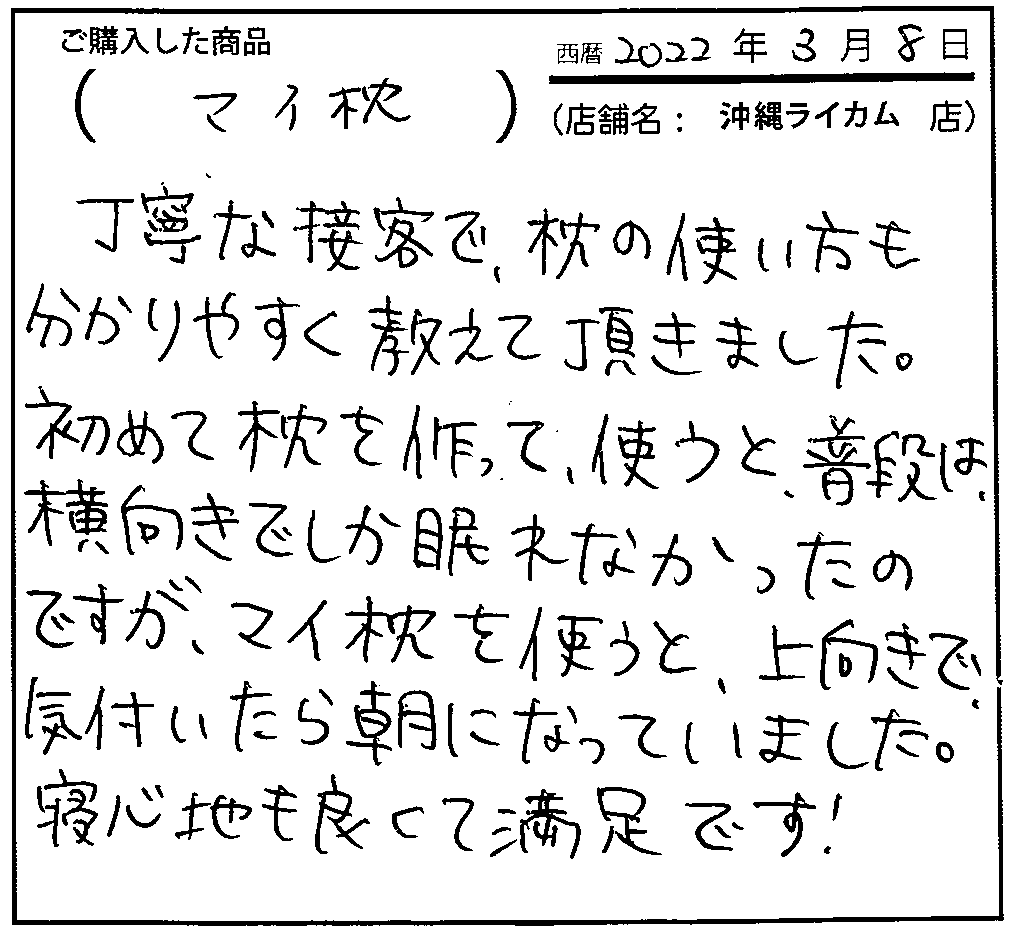 ご購入した商品
西暦 2022 年 3 月 8 日
( マイ枕 )
(店舗名: 沖縄ライカム 店)
丁寧な接客で、枕の使い方も
分かりやすく教えて頂きました。
初めて枕を作って、使うと、普段は、
横向きでしか眠れなかったの
ですが、マイ枕を使うと、上向きで、
気付いたら朝になっていました。
寝心地も良くて満足です!